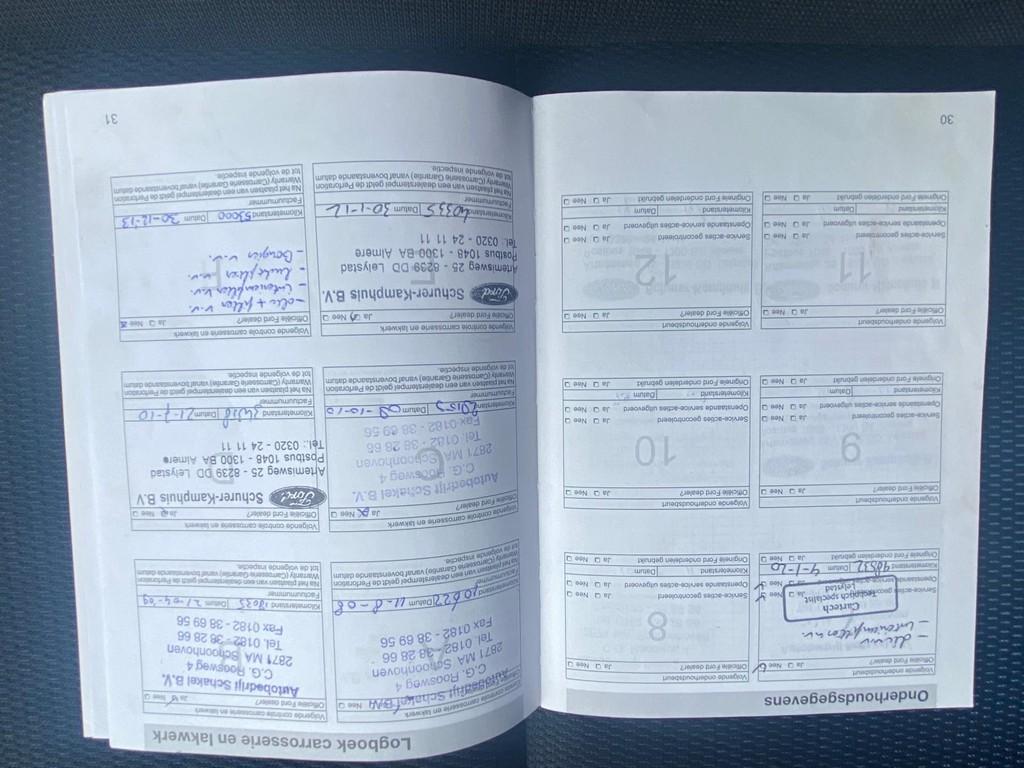 Onderhoudsgegevens
Volgende onderhoudsbeurt
Officiële Ford dealer? Ja Nee
- interieurfilter v.v.
Cartech
Lelystad
Service-acties gecontroleerd
Openstaande service-acties
Kilometerstand 98532 Datum 4-1-20
Originele Ford onderdelen gebruikt Ja Nee
Volgende onderhoudsbeurt
Officiële Ford dealer? Ja Nee
8
Service-acties gecontroleerd Ja Nee
Openstaande service-acties uitgevoerd Ja Nee
Kilometerstand Datum
Originele Ford onderdelen gebruikt Ja Nee
Volgende onderhoudsbeurt
Officiële Ford dealer? Ja Nee
9
Service-acties gecontroleerd Ja Nee
Openstaande service-acties uitgevoerd Ja Nee
Kilometerstand Datum
Originele Ford onderdelen gebruikt Ja Nee
Volgende onderhoudsbeurt
Officiële Ford dealer? Ja Nee
10
Service-acties gecontroleerd Ja Nee
Openstaande service-acties uitgevoerd Ja Nee
Kilometerstand Datum
Originele Ford onderdelen gebruikt Ja Nee
Volgende onderhoudsbeurt
Officiële Ford dealer? Ja Nee
11
Service-acties gecontroleerd Ja Nee
Openstaande service-acties uitgevoerd Ja Nee
Kilometerstand Datum
Originele Ford onderdelen gebruikt Ja Nee
Volgende onderhoudsbeurt
Officiële Ford dealer? Ja Nee
12
Service-acties gecontroleerd Ja Nee
Openstaande service-acties uitgevoerd Ja Nee
Kilometerstand Datum
Originele Ford onderdelen gebruikt Ja Nee
30
Logboek carrosserie en lakwerk
Volgende controle carrosserie en lakwerk
Autobedrijf Schakel B.V.
C.G. Roosweg 4
2871 MA Schoonhoven
Tel. 0182 - 38 28 66
Fax 0182 - 38 69 56
Kilometerstand 10622 Datum 11-8-08
Factuurnummer
Na het plaatsen van een dealerstempel geldt de Perforation
Warranty (Carrosserie Garantie) vanaf bovenstaande datum
tot de volgende inspectie.
Volgende controle carrosserie en lakwerk
Officiële Ford dealer? Ja Nee
Autobedrijf Schakel B.V.
C.G. Roosweg 4
2871 MA Schoonhoven
Tel. 0182 - 38 28 66
Fax 0182 - 38 69 56
Kilometerstand 18635 Datum 21-04-09
Factuurnummer
Na het plaatsen van een dealerstempel geldt de Perforation
Warranty (Carrosserie Garantie) vanaf bovenstaande datum
tot de volgende inspectie.
Volgende controle carrosserie en lakwerk
Officiële Ford dealer? Ja Nee
C
Autobedrijf Schakel B.V.
C.G. Roosweg 4
2871 MA Schoonhoven
Tel. 0182 - 38 28 66
Fax 0182 - 38 69 56
Kilometerstand Datum
Factuurnummer
Na het plaatsen van een dealerstempel geldt de Perforation
Warranty (Carrosserie Garantie) vanaf bovenstaande datum
tot de volgende inspectie.
Volgende controle carrosserie en lakwerk
Officiële Ford dealer? Ja Nee
D
Ford Schurer-Kamphuis B.V.
Artemisweg 25 - 8239 DD Lelystad
Postbus 1048 - 1300 BA Almere
Tel.: 0320 - 24 11 11
Kilometerstand 34318 Datum 21-7-10
Factuurnummer
Na het plaatsen van een dealerstempel geldt de Perforation
Warranty (Carrosserie Garantie) vanaf bovenstaande datum
tot de volgende inspectie.
Volgende controle carrosserie en lakwerk
Officiële Ford dealer? Ja Nee
E
Ford Schurer-Kamphuis B.V.
Artemisweg 25 - 8239 DD Lelystad
Postbus 1048 - 1300 BA Almere
Tel.: 0320 - 24 11 11
Kilometerstand 40335 Datum 30-1-12
Factuurnummer
Na het plaatsen van een dealerstempel geldt de Perforation
Warranty (Carrosserie Garantie) vanaf bovenstaande datum
tot de volgende inspectie.
Volgende controle carrosserie en lakwerk
Officiële Ford dealer? Ja Nee
F
- olie + filter v.v.
- interieurfilter v.v.
- luchtfilter v.v.
- Bougies v.v.
Kilometerstand 53000 Datum 30-12-13
Factuurnummer
Na het plaatsen van een dealerstempel geldt de Perforation
Warranty (Carrosserie Garantie) vanaf bovenstaande datum
tot de volgende inspectie.
31